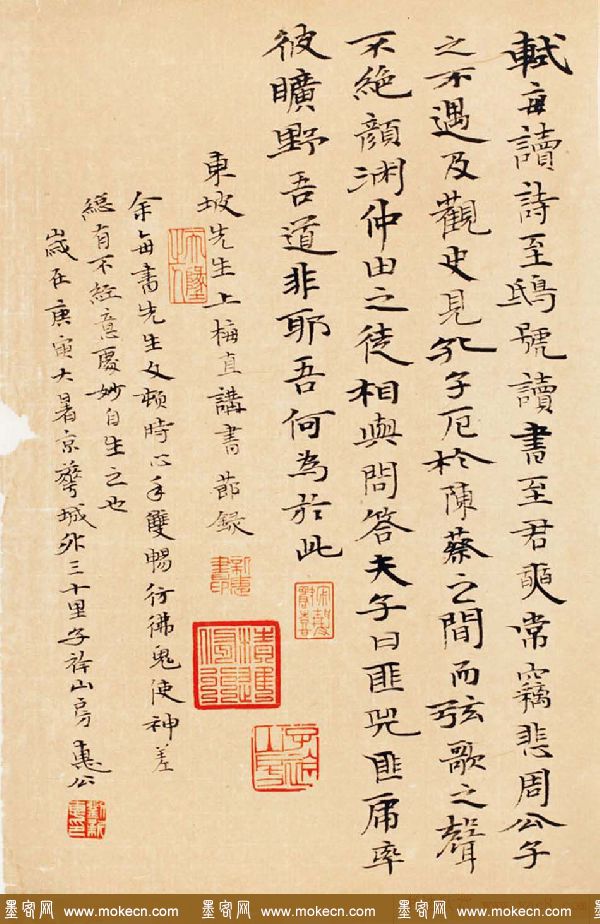 軾每讀詩至鴟號讀書至君奭常竊悲周公子
之不遇及觀史見孔子厄於陳蔡之間而弦歌之聲
不絕顏淵仲由之徒相與問答夫子曰匪兕匪虎率
彼曠野吾道非耶吾何為於此
東坡先生上梅直講書節錄
余每書先生文頓時心手雙暢彷彿鬼使神差
縂有不經意處妙自生之也
歲在庚寅大暑京華城外三十里子山房惠公
新惠書印
劉新惠印
墨客网 www.mokecn.com 墨客网 www.mokecn.com 墨客网 www.mokecn.com